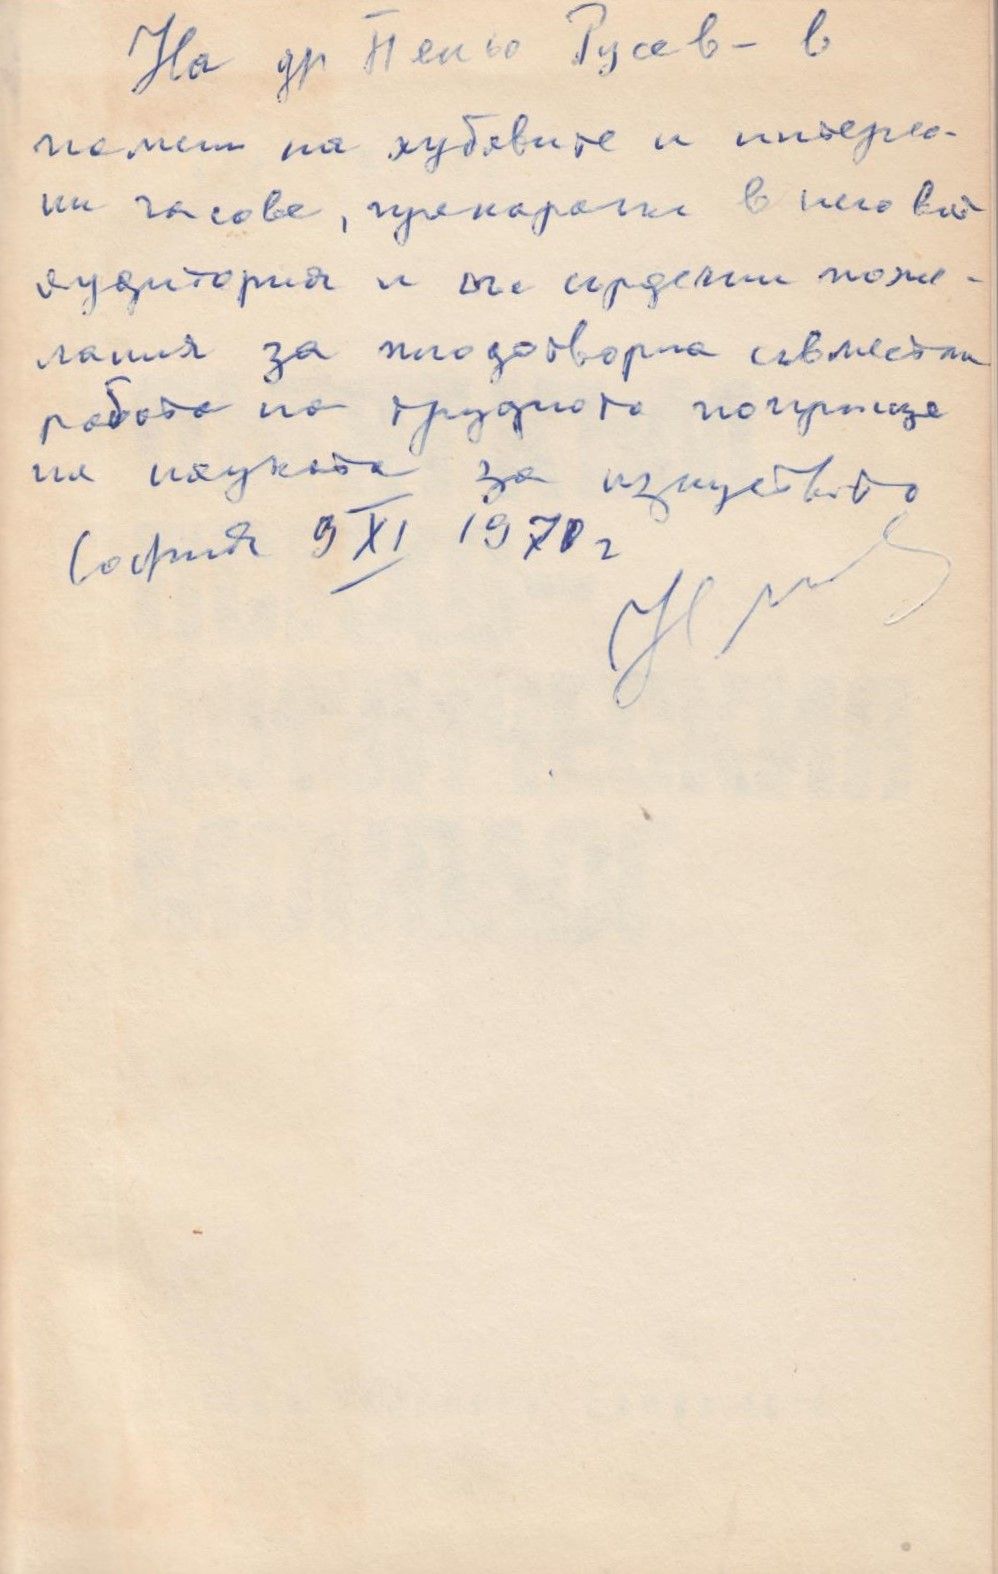 На др Пеньо Русев – в
памет на хубавите и интерес-
ни часове, прекарани в неговата
аудитория и със сърдечни поже-
лания за плодотворна съвместна
работа на трудното поприще
на науката за изкуството
София 9 XI 1970 г